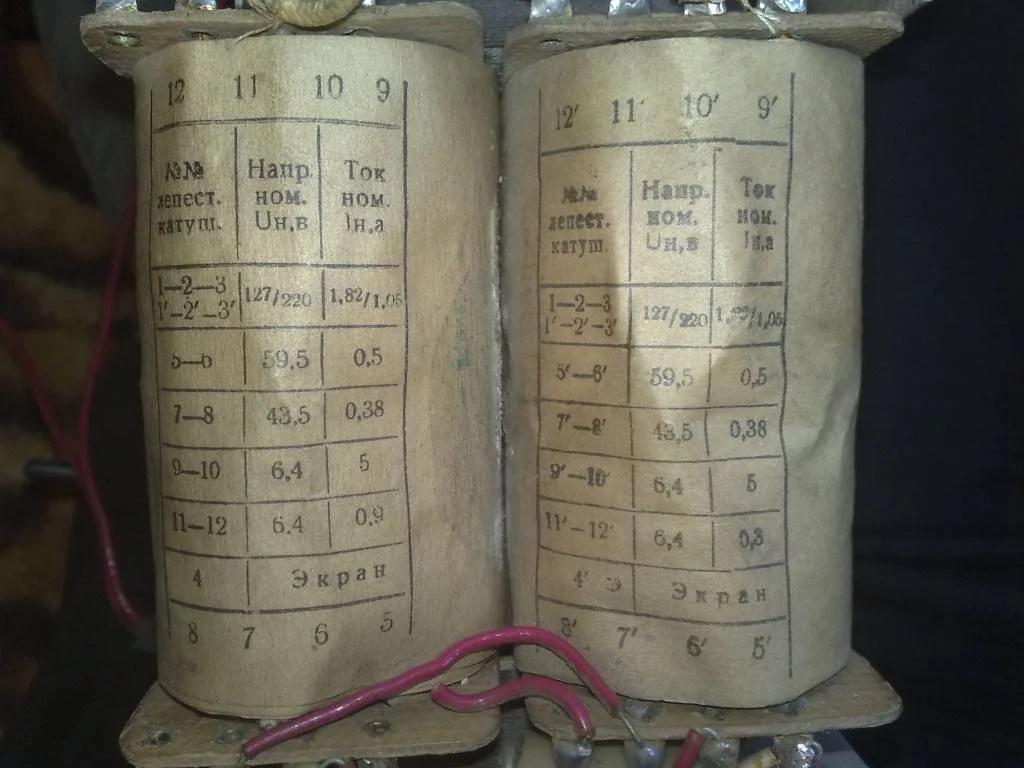 12 11 10 9
№№ Напр. Ток
лепест. ном. ном.
катуш. Uн,в Iн,а
1—2—3
1′—2′—3′ 127/220 1,82/1,05
5—6 59,5 0,5
7—8 43,5 0,38
9—10 6,4 5
11—12 6,4 0,9
4 Экран
8 7 6 5
12′ 11′ 10′ 9′
№№ Напр. Ток
лепест. ном. ном.
катуш. Uн,в Iн,а
1—2—3
1′—2′—3′ 127/220 1,05
5′—6′ 59,5 0,5
7′—8′ 43,5 0,38
9′—10′ 6,4 5
11′—12′ 6,4 0,3
4′ Э Экран
8′ 7′ 6′ 5′